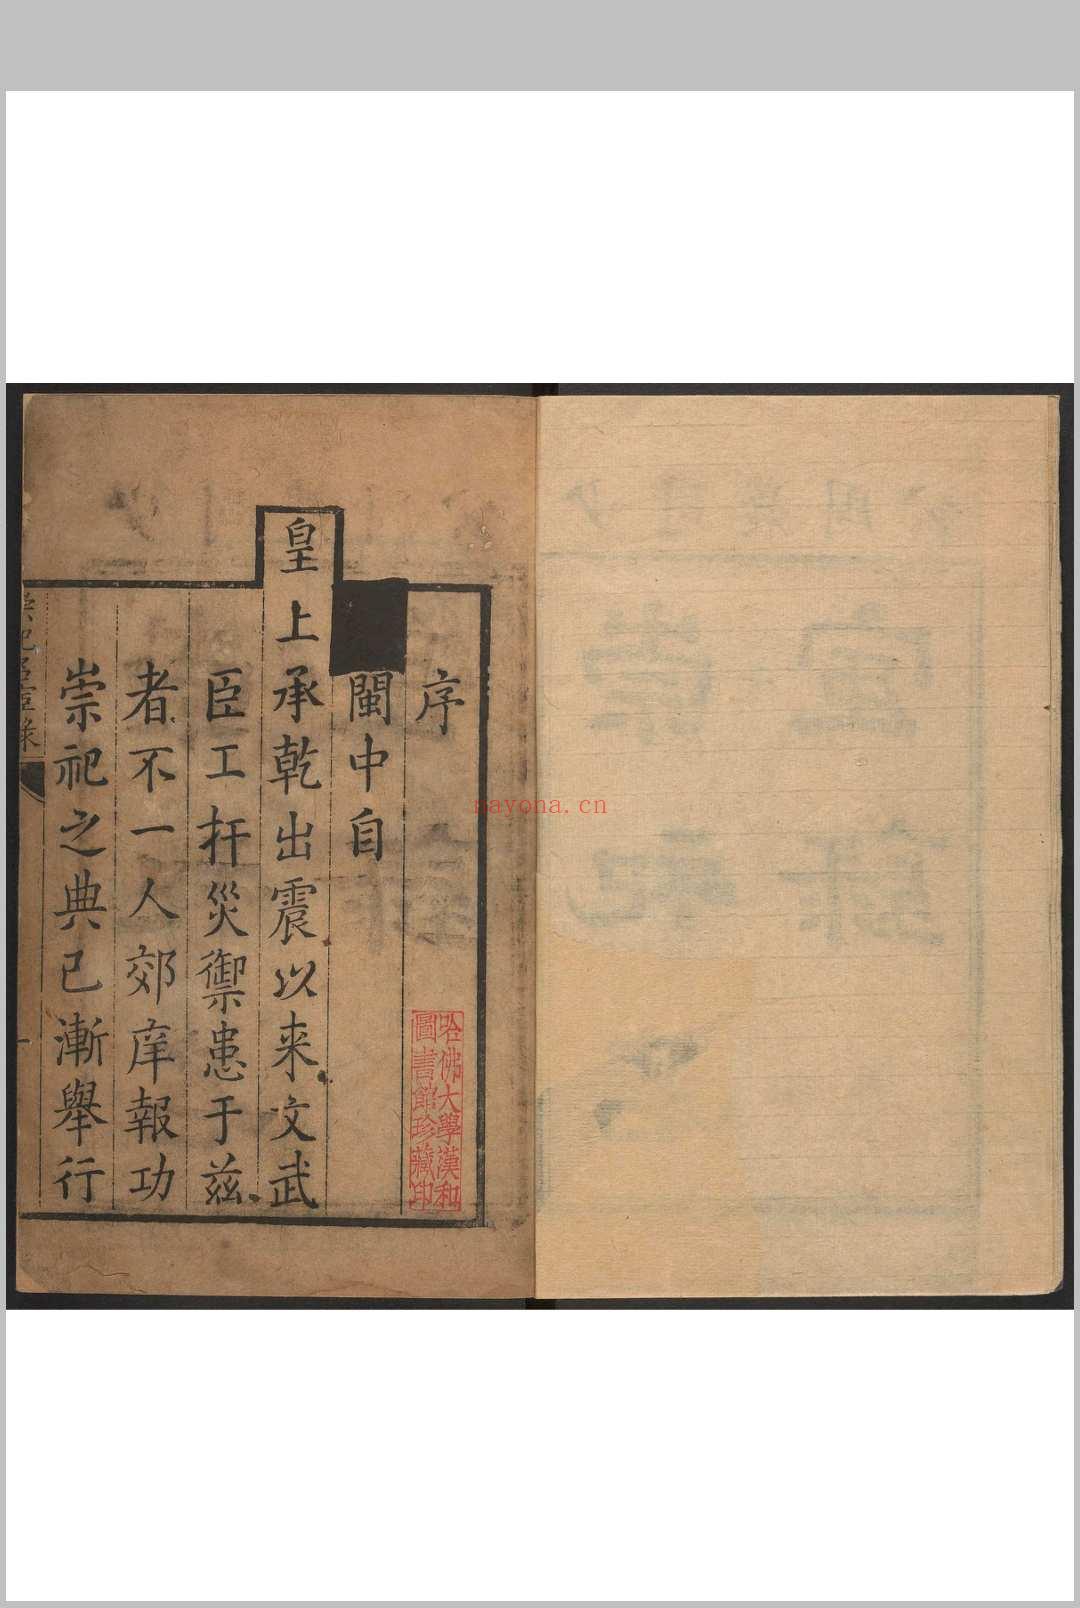 序
閩中自
皇上承乾出震以来文武
臣工扞災禦患于兹
者不一人郊庠報功
崇祀之典已漸舉行
哈佛大學漢和
圖書館珍藏印
nayona.cn